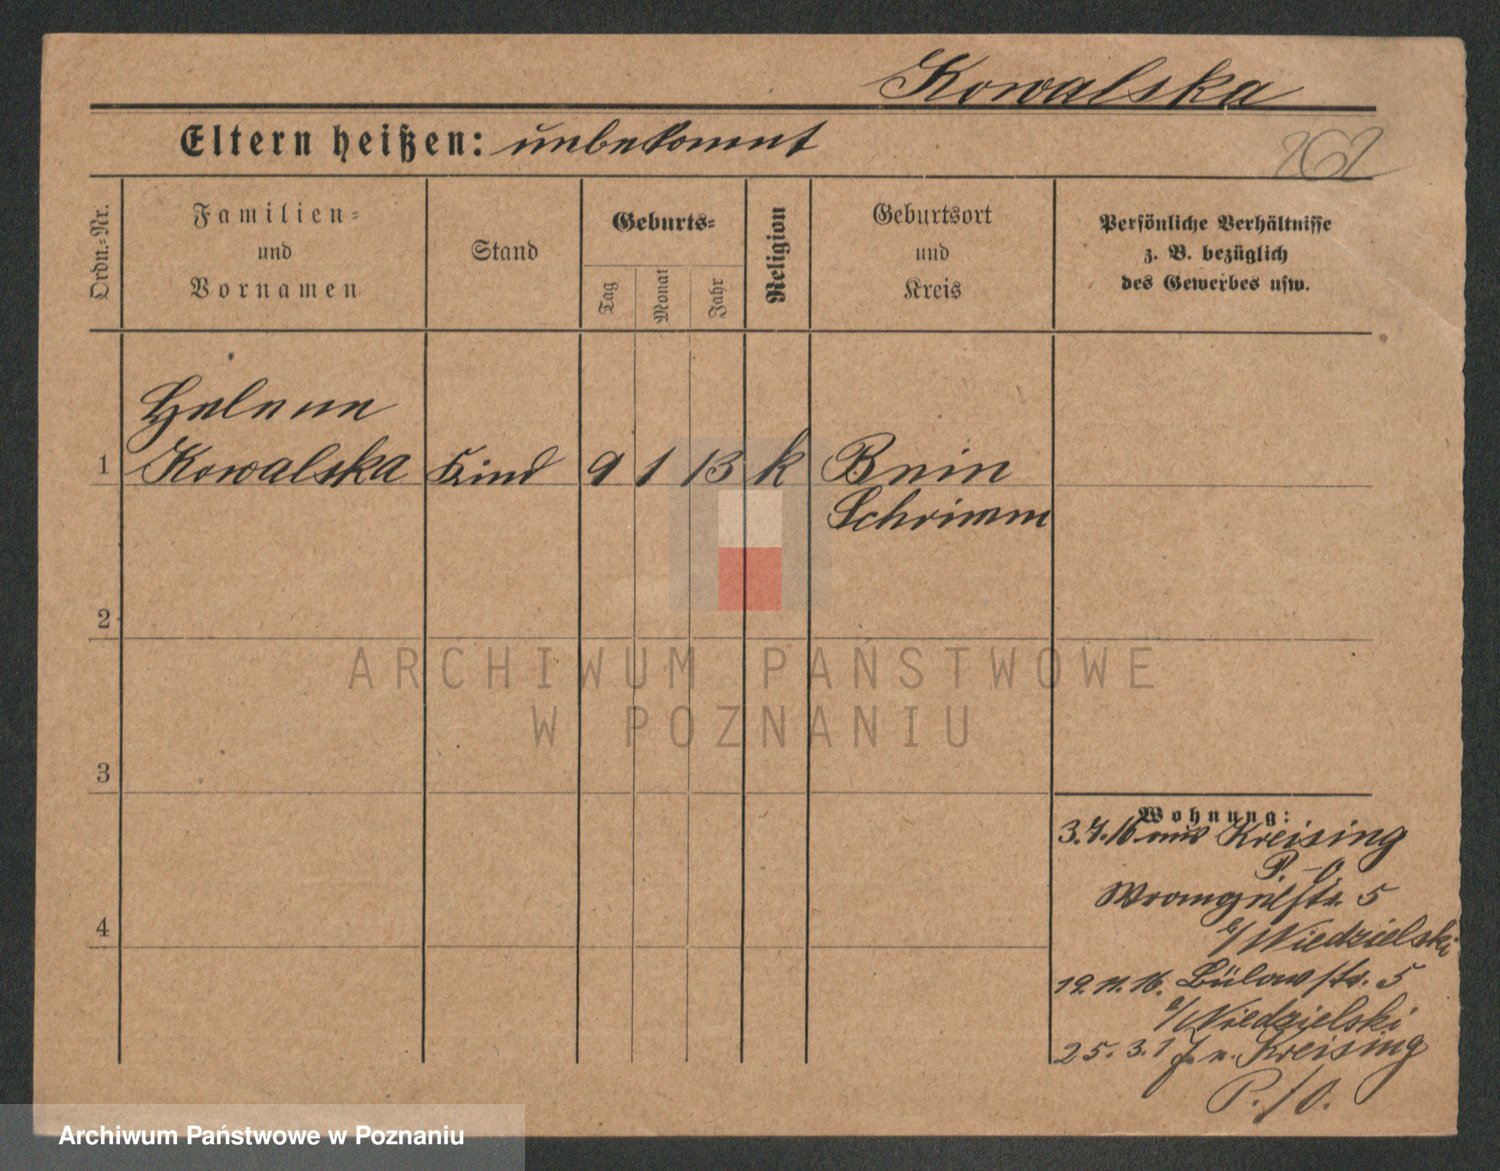 Kowalska
Eltern heißen: unbekannt
262
Ordn.=Nr.
Familien=
und
Vornamen
Stand
Geburts=
Tag
Monat
Jahr
Religion
Geburtsort
und
Kreis
Persönliche Verhältnisse
z. B. bezüglich
des Gewerbes usw.
Helene
1 Kowalska Kind 9 1 13 k Bnin
Schrimm
2
ARCHIWUM PAŃSTWOWE
W POZNANIU
3
Wohnung:
3.7.16 aus Kreising
P. O.
Wrangelstr. 5
b/Niedzielski
4
19.11.16. Bülowstr. 5
b/Niedzielski
25.3.17 n. Kreising
P./O.
Archiwum Państwowe w Poznaniu